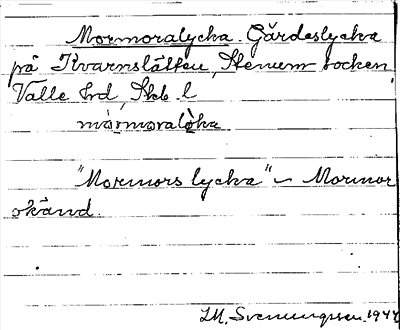 Mormoralycka. Gärdeslycka
på Kvarnslätten, Stenum socken,
Valle hd, Skb. l
mòrmoralỳka
"Mormors lycka" – Mormor
okänd.
I.M. Svenungsson. 1947